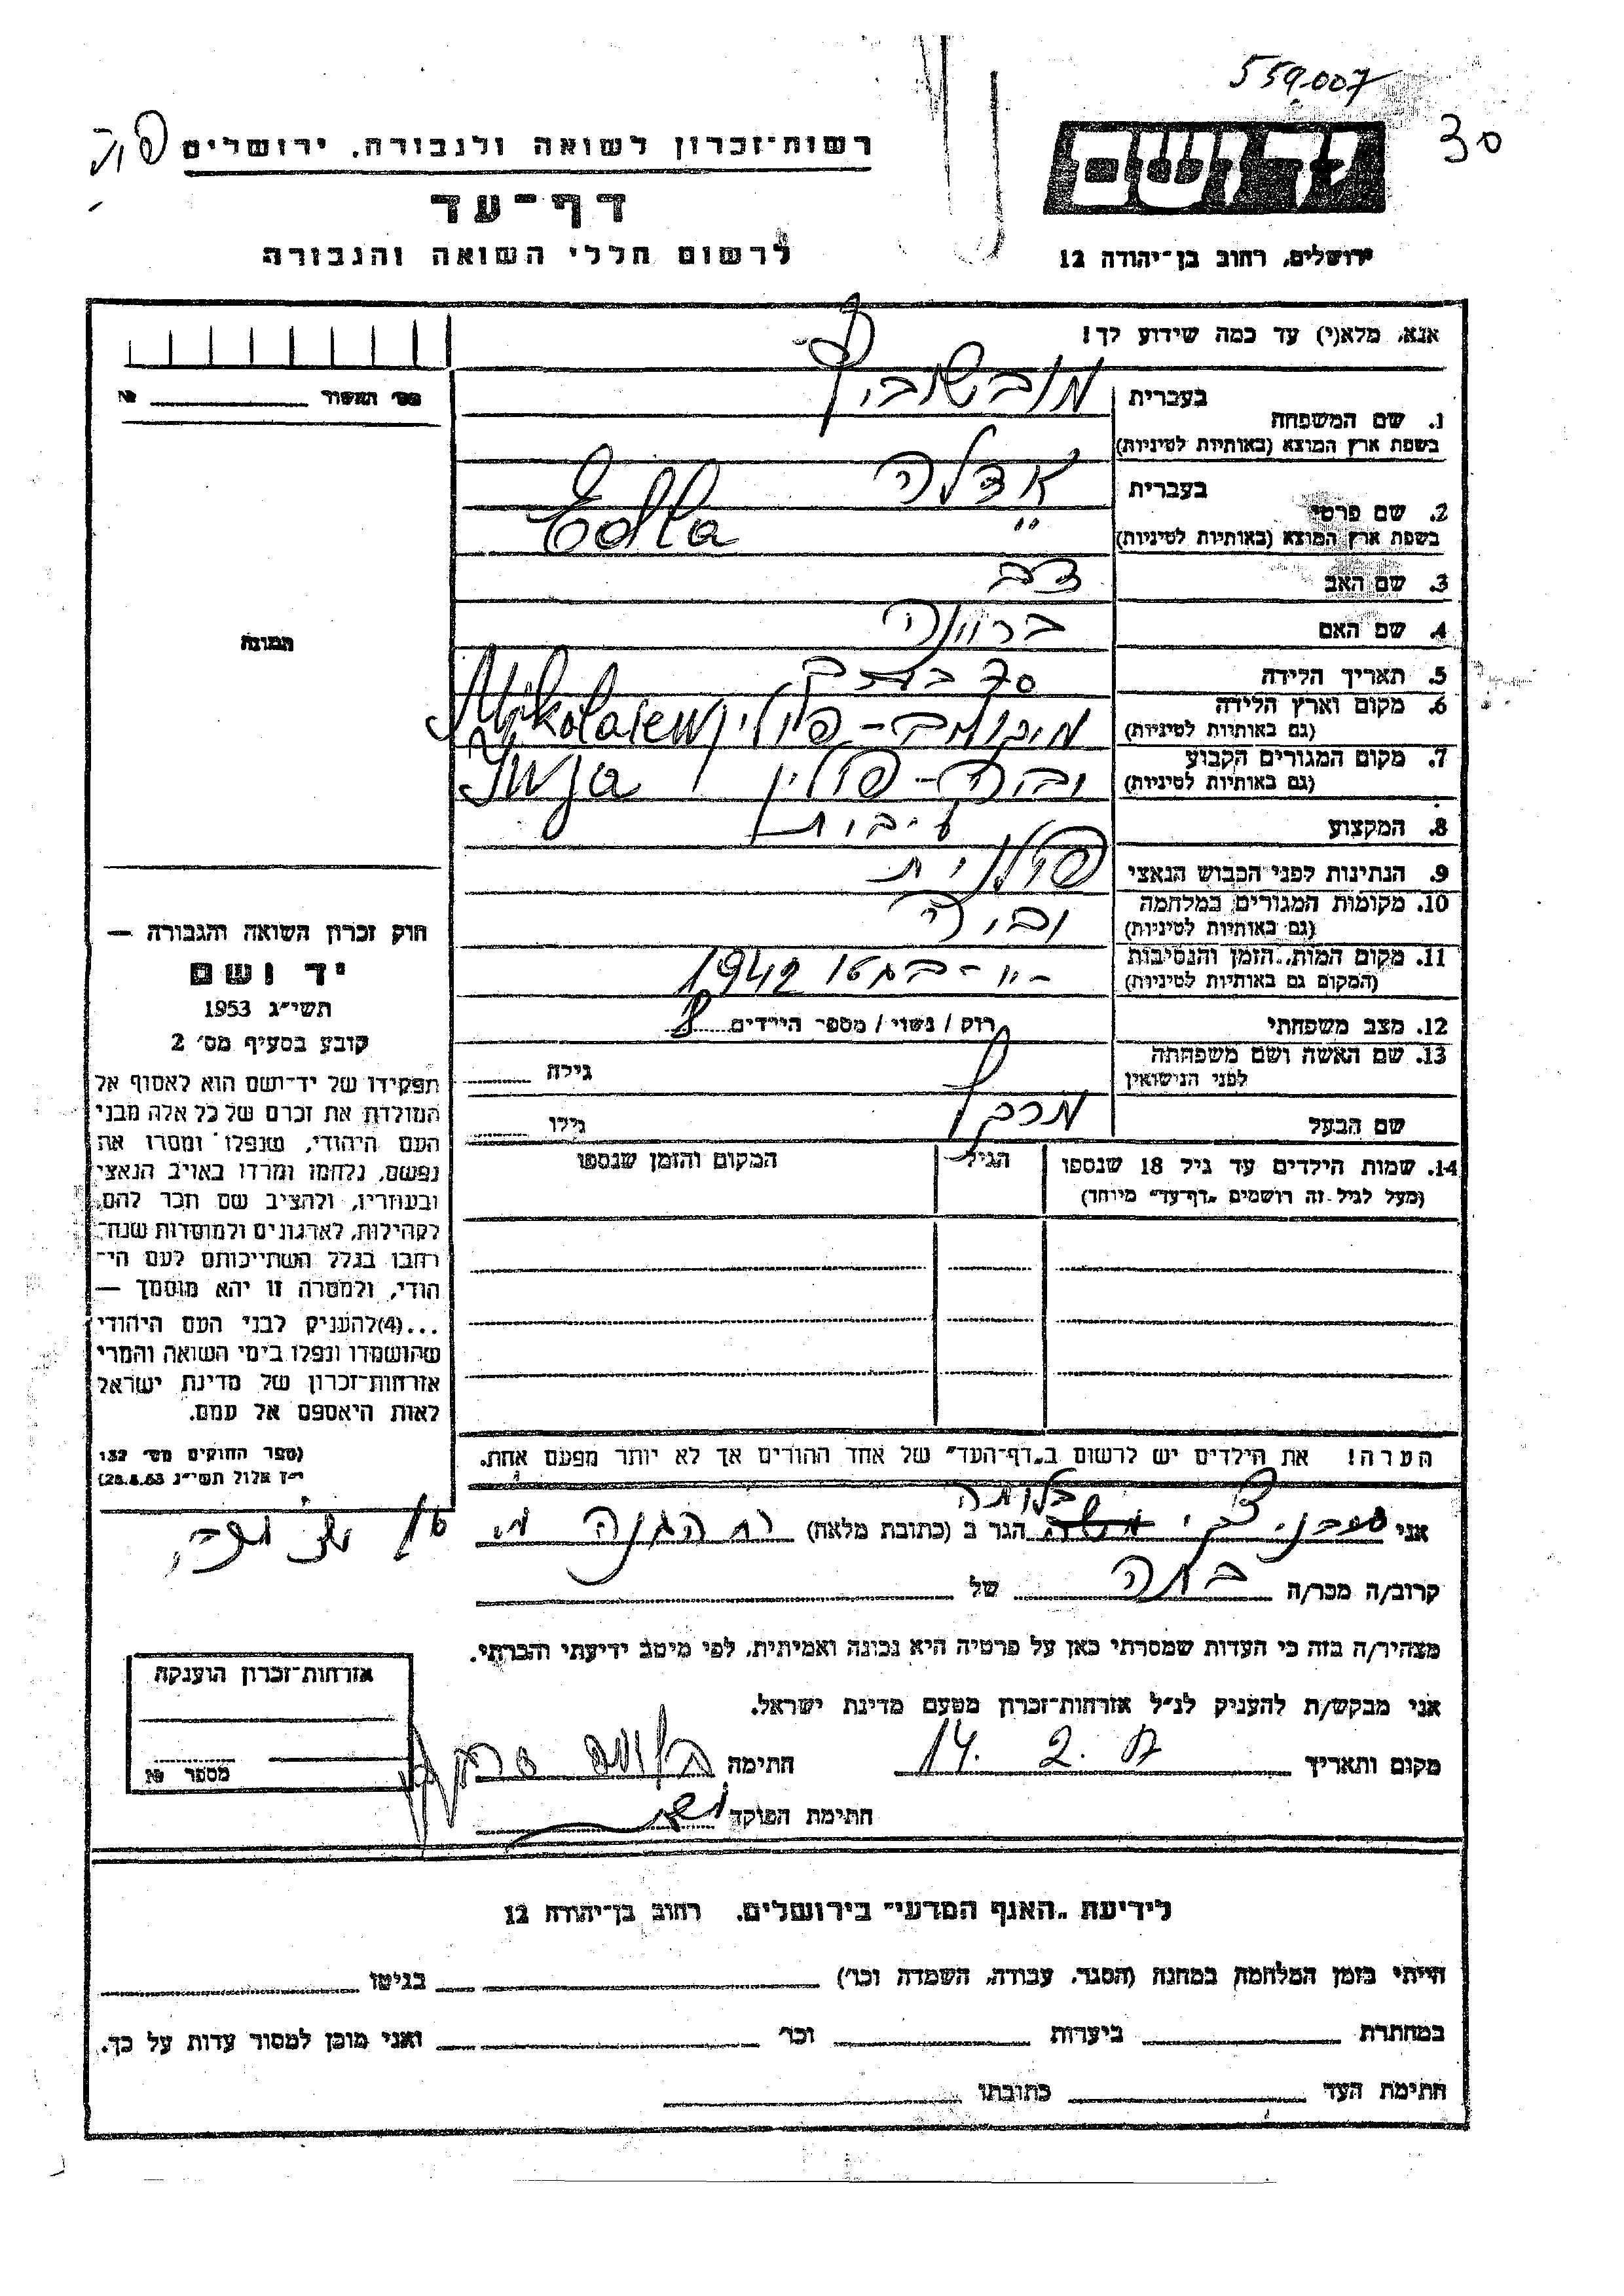 559.007
30
יד ושם
רשות־זכרון לשואה ולגבורה, ירושלים
דף־עד
לרשום חללי השואה והגבורה
ירושלים, רחוב בן־יהודה 12
אנא, מלא(י) עד כמה שידוע לך!
מס' האשור № 
1. שם המשפחה
בעברית
בשפת ארץ המוצא (באותיות לטיניות)
2. שם פרטי
בעברית אדלה
בשפת ארץ המוצא (באותיות לטיניות) " Edla
3. שם האב
4. שם האם
5. תאריך הלידה 70
6. מקום וארץ הלידה
(גם באותיות לטיניות) פולין Mikolaiew
7. מקום המגורים הקבוע
(גם באותיות לטיניות) פולין
8. המקצוע
9. הנתינות לפני הכבוש הנאצי פולנית
10. מקומות המגורים במלחמה
(גם באותיות לטיניות)
11. מקום המות, הזמן והנסיבות
(המקום גם באותיות לטיניות) - " - בגטו 1942
12. מצב משפחתי רוק / נשוי / מספר הילדים 8
13. שם האשה ושם משפחתה
לפני הנישואין גילה
שם הבעל גילו
14. שמות הילדים עד גיל 18 שנספו הגיל המקום והזמן שנספו
(מעל לגיל זה רושמים "דף־עד" מיוחד)
הערה! את הילדים יש לרשום ב"דף־העד" של אחד ההורים אך לא יותר מפעם אחת.
התמונה
חוק זכרון השואה והגבורה —
יד ושם
תשי״ג 1953
קובע בסעיף מס' 2
תפקידו של יד־ושם הוא לאסוף אל
המולדת את זכרם של כל אלה מבני
העם היהודי, שנפלו ומסרו את
נפשם, נלחמו ומרדו באויב הנאצי
ובעוזריו, ולהציב שם וזכר להם,
לקהילות, לארגונים ולמוסדות שנח־
רבו בגלל השתייכותם לעם הי־
הודי, ולמטרה זו יהא מוסמך —
...(4) להעניק לבני העם היהודי
שהושמדו ונפלו בימי השואה והמרי
אזרחות־זכרון של מדינת ישראל
לאות היאספם אל עמם.
(ספר החוקים מס' 132
י״ז אלול תשי״ג 28.8.53)
אני הגר ב (כתובת מלאה) רח ההגנה
קרוב/ה מכר/ה בתה של
מצהיר/ה בזה כי העדות שמסרתי כאן על פרטיה היא נכונה ואמיתית, לפי מיטב ידיעתי והכרתי.
אני מבקש/ת להעניק לנ״ל אזרחות־זכרון מטעם מדינת ישראל.
מקום ותאריך 14. 2. 57 חתימה
חתימת הפוקד
אזרחות־זכרון הוענקה
מספר №
לידיעת "האגף המדעי" בירושלים, רחוב בן־יהודה 12
הייתי בזמן המלחמה במחנה (הסגר, עבודה, השמדה וכו') בגיטו
במחתרת ביערות וכו' ואני מוכן למסור עדות על כך.
חתימת העד כתובתו